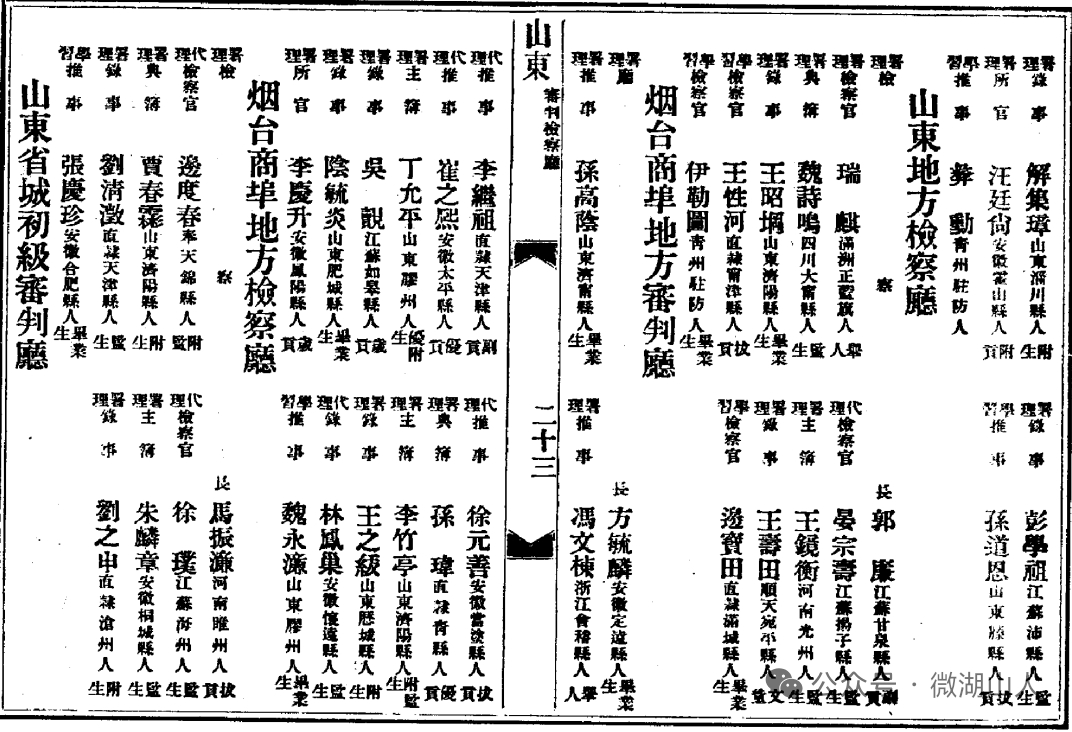 署理錄事 解集璋 山東淄川縣人 附生
署理錄事 彭學祖 江蘇沛縣人 監生
署理所官 汪廷尙 安徽霍山縣人 附貢
學習推事 孫道恩 山東滕縣人 拔貢
學習推事 彜勳 青州駐防人
山東地方檢察廳
署理檢察長 郭廉 江蘇甘泉縣人 副貢
署理檢察官 瑞麒 滿洲正藍旗人 舉人
代理檢察官 晏宗壽 江蘇揚子縣人 監生
署理典簿 魏詩鳴 四川大甯縣人 監生
署理主簿 王鏡衡 河南光州人 監生
署理錄事 王昭堈 山東濟陽縣人 畢業生
署理錄事 王壽田 順天宛平縣人 文監
學習檢察官 王性河 直隸甯津縣人 拔貢
學習檢察官 邊寶田 直隸滿城縣人 畢業生
學習檢察官 伊勒圖 青州駐防人 畢業生
烟台商埠地方審判廳
署理廳長 方毓麟 安徽定遠縣人 畢業生
署理推事 孫高陰 山東濟甯縣人 畢業生
署理推事 馮文棟 浙江會稽縣人 舉人
山東 審判檢察廳 二十三
代理推事 李繼祖 直隸天津縣人 副貢
代理推事 徐元善 安徽當塗縣人 拔貢
代理推事 崔之熙 安徽太平縣人 優貢
署理典簿 孫瑋 直隸青縣人 優貢
署理主簿 丁允平 山東膠州人 優附生
署理主簿 李竹亭 山東濟陽縣人 附監生
署理錄事 吳觀 江蘇如皋縣人 歲貢
代理錄事 王之級 山東歷城縣人 附生
署理錄事 陰毓炎 山東肥城縣人 畢業生
代理錄事 林鳳巢 安徽懷遠縣人 監生
署理所官 李慶升 安徽鳳陽縣人 歲貢
學習推事 魏永濂 山東膠州人 畢業生
烟台商埠地方檢察廳
署理檢察長 馬振濂 河南睢州人 拔貢
代理檢察官 邊度春 奉天錦縣人 附監
代理檢察官 徐璞 江蘇海州人 監生
署理典簿 賈春霖 山東濟陽縣人 附生
署理主簿 朱麟章 安徽桐城縣人 監生
署理錄事 劉清澂 直隸天津縣人 監生
署理錄事 劉之申 直隸滄州人 附生
學習推事 張慶珍 安徽合肥縣人 畢業生
山東省城初級審判廳
公众号 · 微湖山人